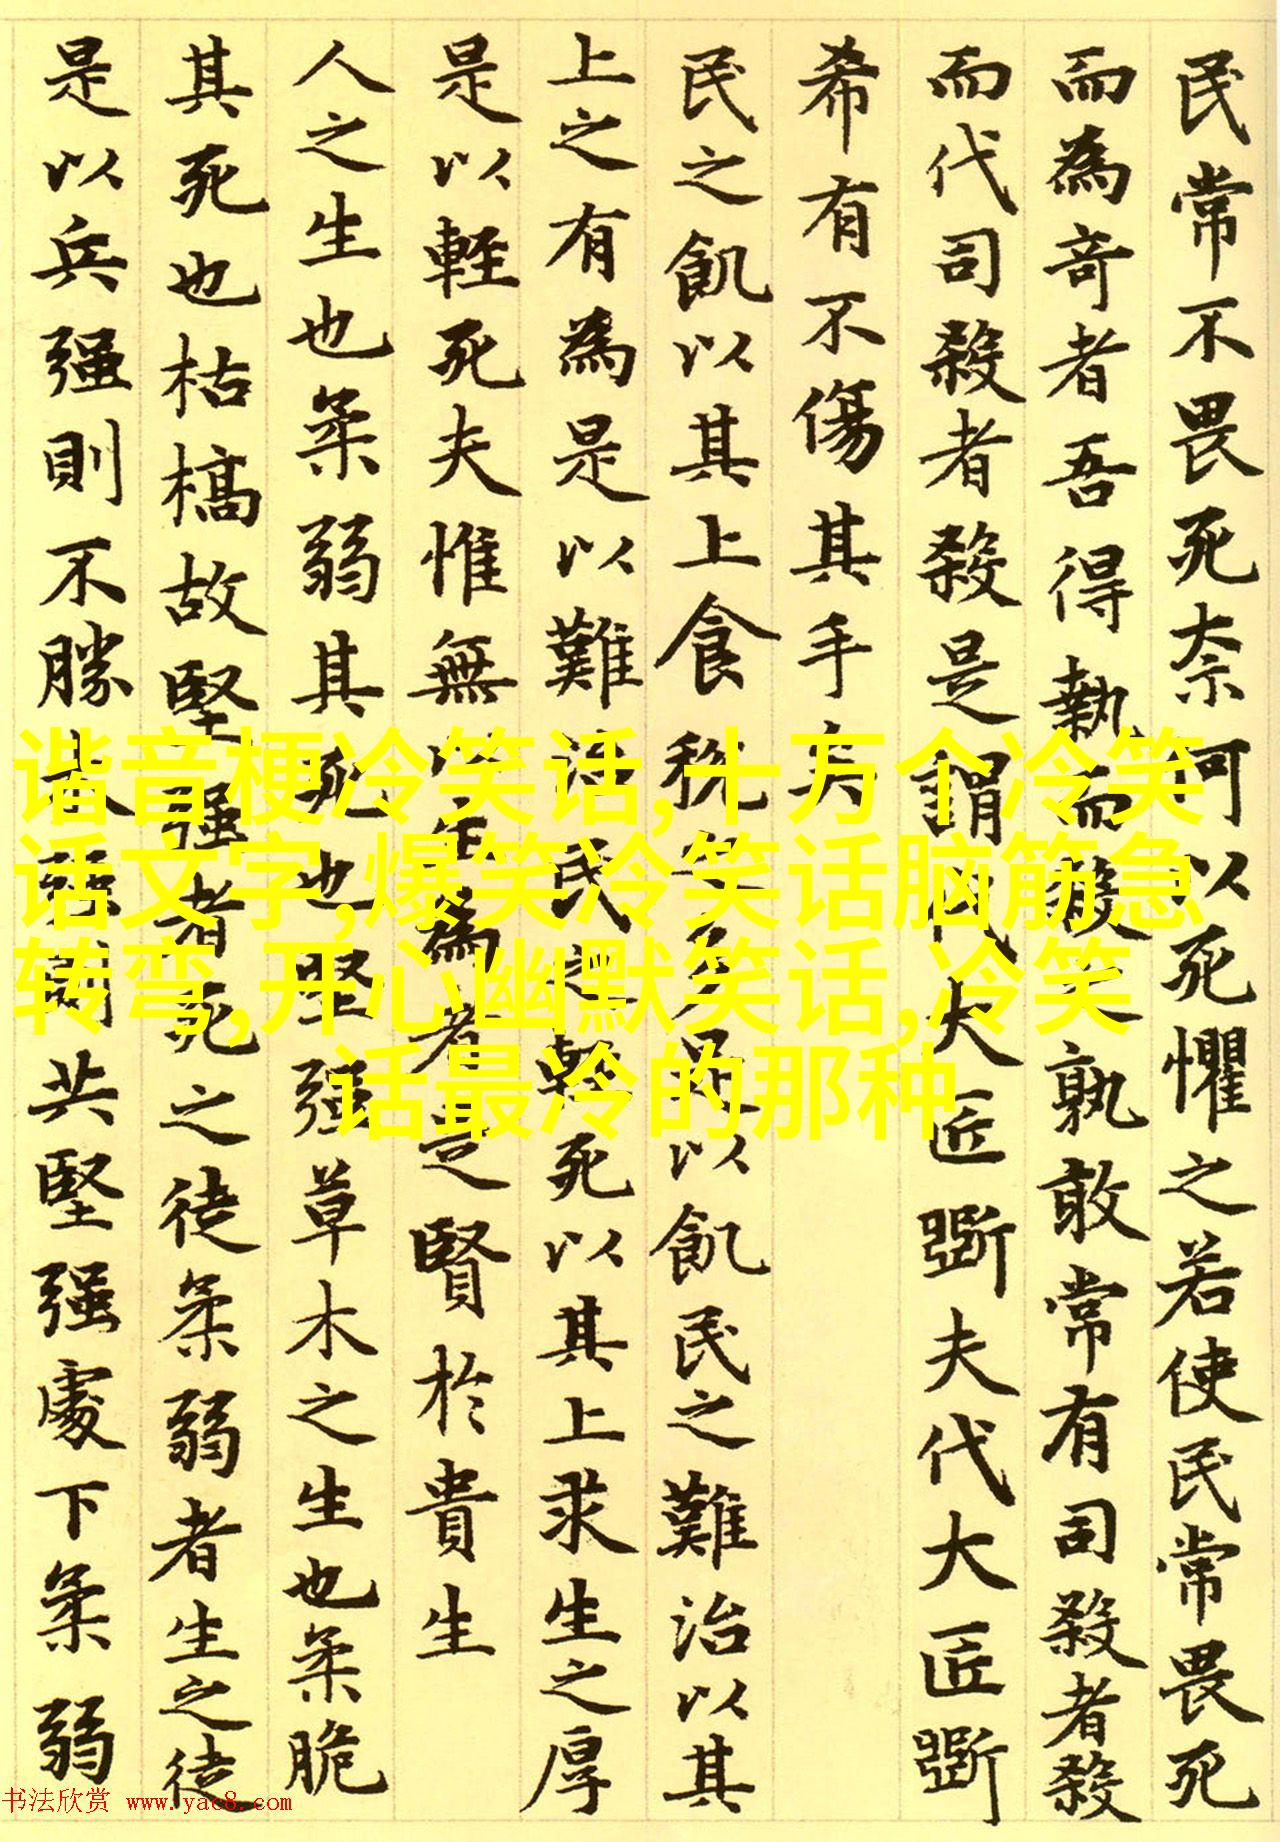 民常不畏死柰何以死懼之若使民常畏死
而為奇者吾得執而殺之孰敢常有司殺者殺
而代司殺者殺是謂代大匠斲夫代大匠斲
希有不傷其手矣
民之飢以其上食稅之多是以飢民之難治以其
上之有為是以難治民之輕死以其上求生之厚
是以輕死夫惟無以生為者是賢於貴生
人之生也柔弱其死也堅强草木之生也柔脆
其死也枯槁故堅强者死之徒柔弱者生之徒
是以兵强則不勝木强則共堅强處下柔弱
谐音梗冷笑话,十万个冷笑
话文字,爆笑冷笑话脑筋急
转弯,开心幽默笑话,冷笑
话最冷的那种
书法欣赏 www.yac8.com